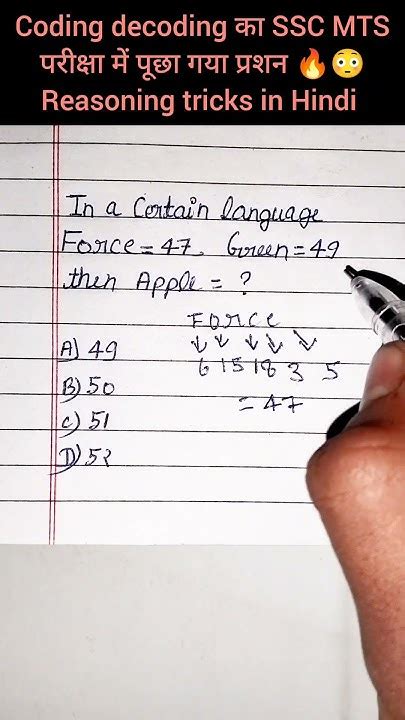 Coding decoding का SSC MTS
परीक्षा में पूछा गया प्रशन 🔥😳
Reasoning tricks in Hindi
In a Certain language
Force = 47, Green = 49
then Apple = ?
Force
A) 49
6 15 18 3 5
B) 50
= 47
C) 51
D) 52